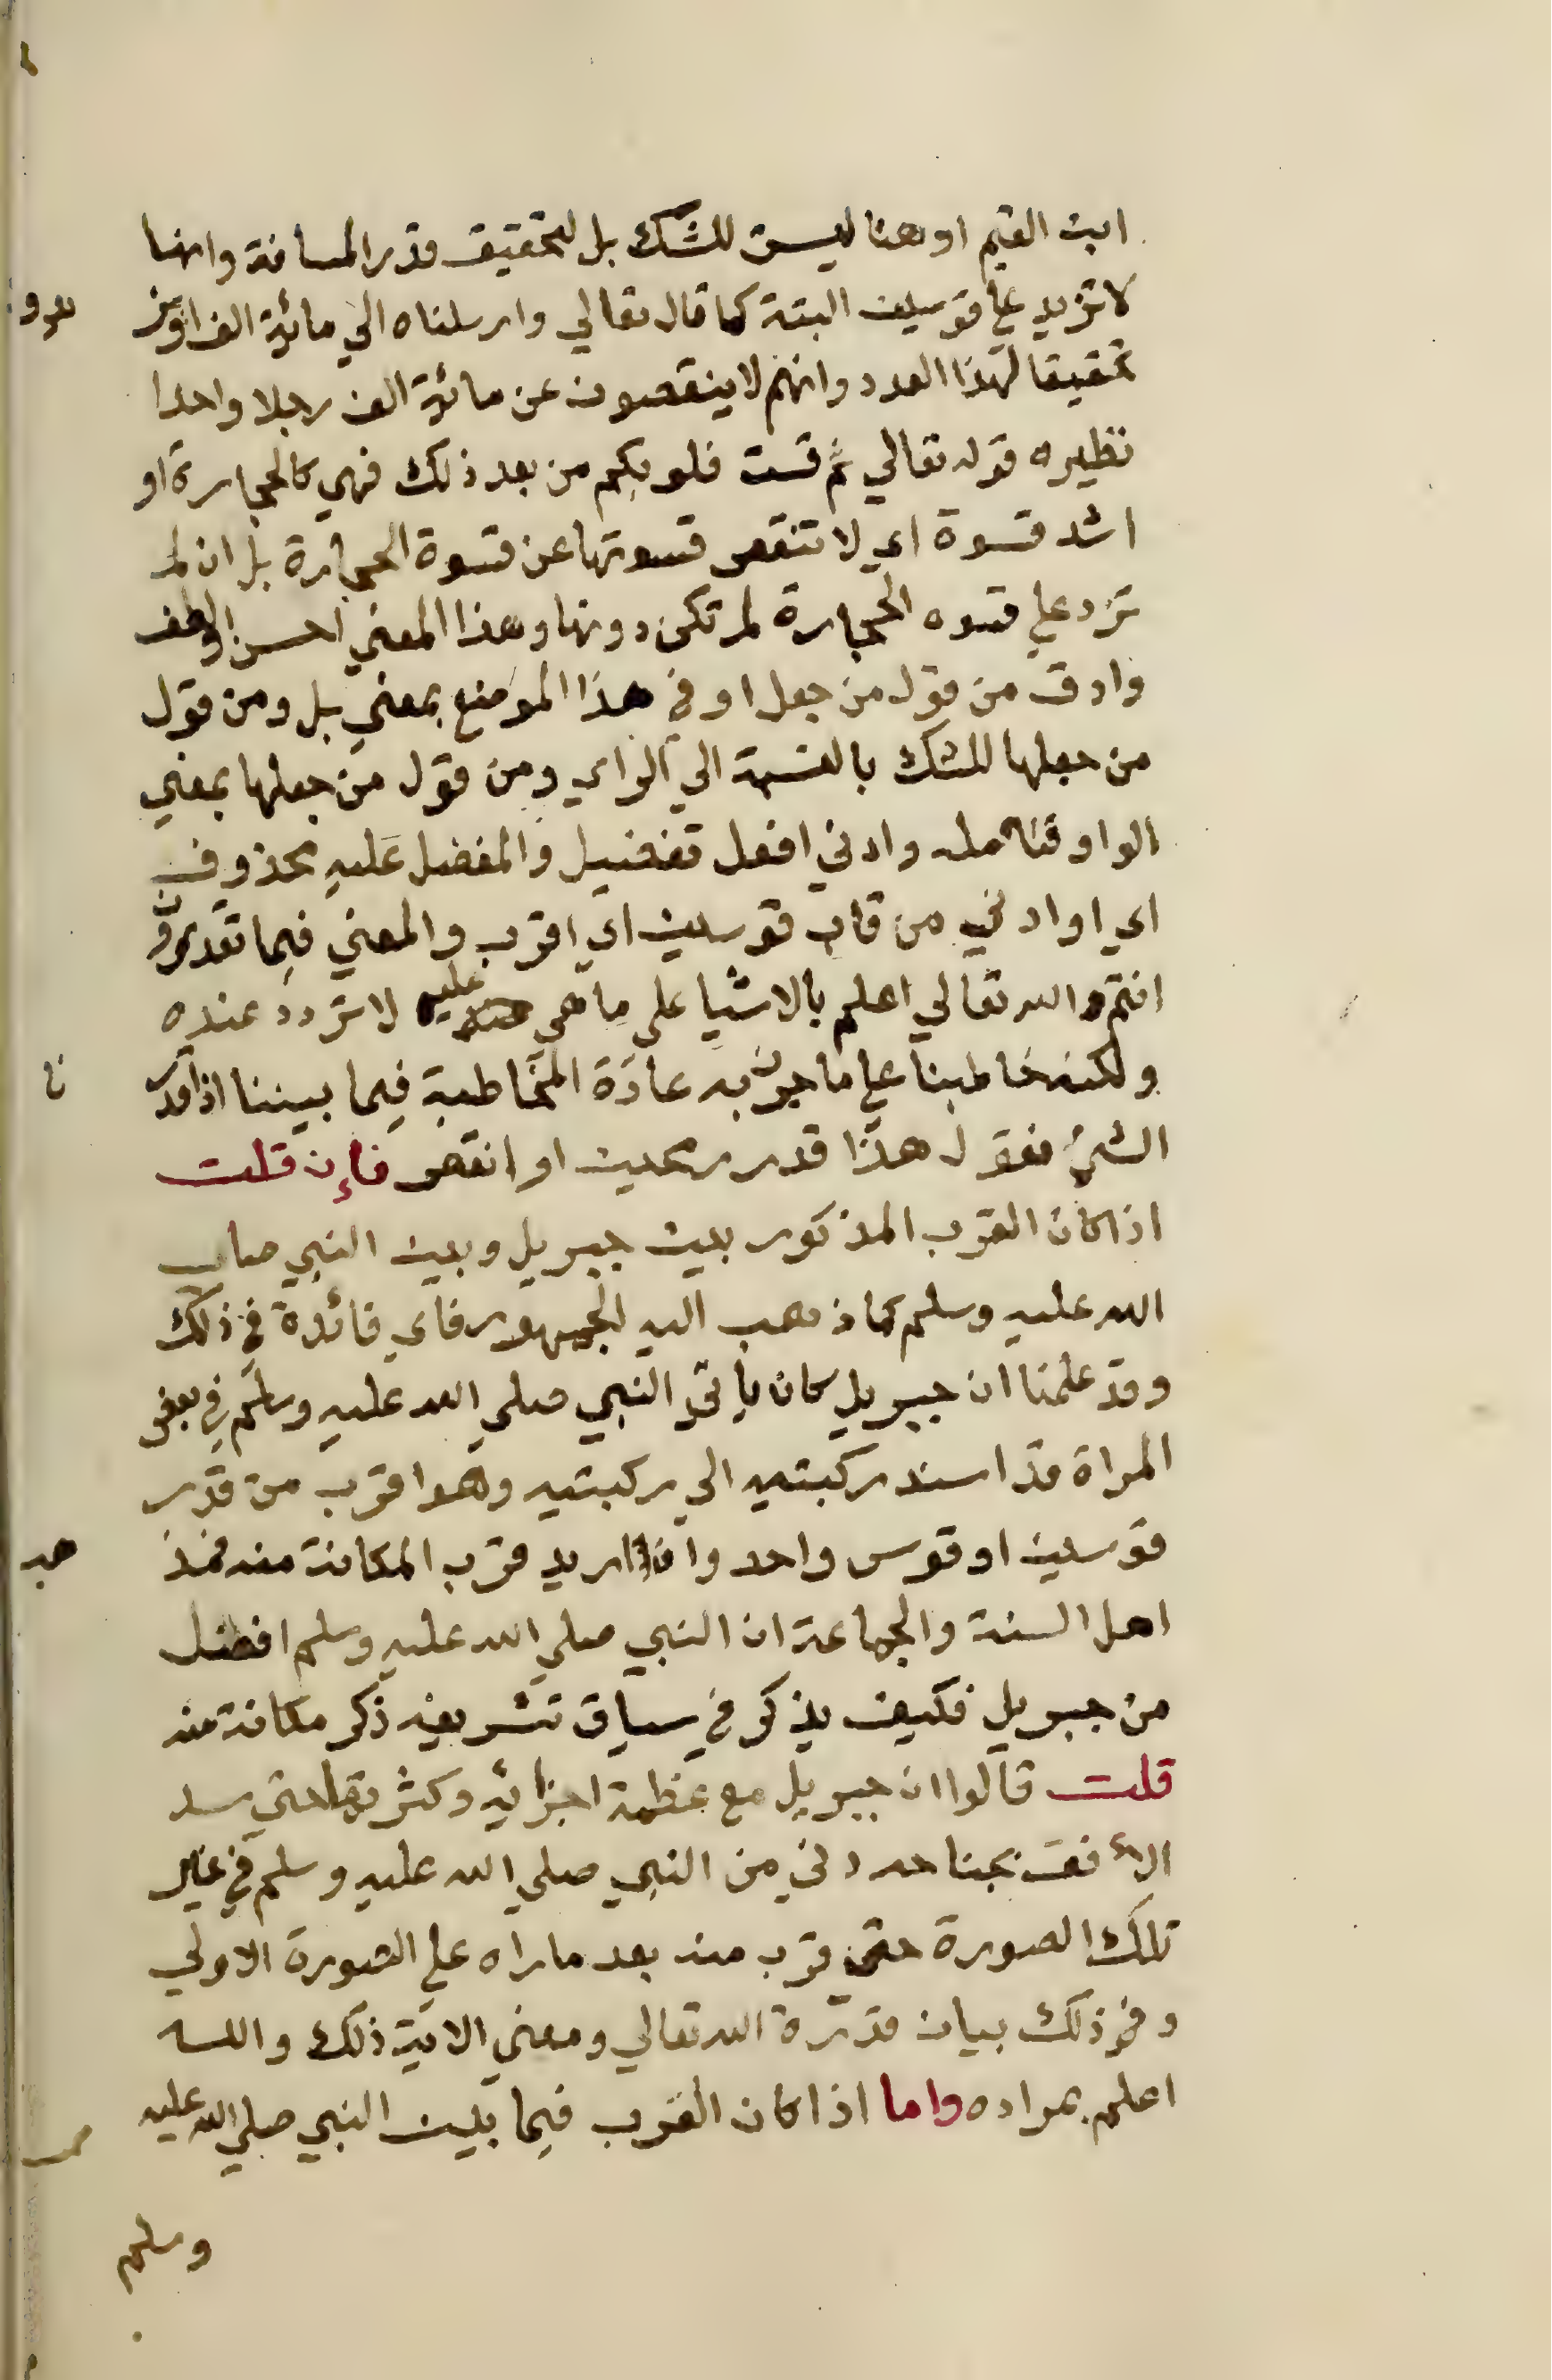 ابن القيم او هنا ليست للشك بل لتحقيق قدر المسافة وانها
لا تزيد على قوسين البتة كما قال تعالي وارسلناه الي مائة الف اويز
يدو
تحقيقا لهذا العدد وانهم لا ينقصون عن مائة الف رجلا واحدا
نظيره قوله تعالي ثم قست قلوبكم من بعد ذلك فهي كالحجارة او
اشد قسوة اي لا تنقص قسوتها عن قسوة الحجارة بل ان لم
تزد علي قسوه الحجارة لم تكن دونها وهذا المعني احسن والطف
وادق من قول من جعل او في هذا الموضع بمعني بل ومن قول
من جعلها للشك بالنسبة الي الراي ومن قول من جعلها بمعني
الواو فتامله وادني افعل تفضيل والمفضل عليه محذوف
اي او ادني من قاب قوسين اي اقرب والمعني فيما تقدرون
انتم والله تعالي اعلم بالاشيا على ما هي عليه لا تردد عنده
ولكنه خاطبنا علي ما جرت به عادة المخاطبة فيما بيننا اذا قد
نا
الشئ فنقول هذا قدر رمحين او انقص فإن قلت
اذا كان القرب المذكور بين جبريل وبين النبي صلى
الله عليه وسلم كما ذهب اليه الجمهور فاي فائدة في ذلك
وقد علمنا ان جبريل كان يأتي النبي صلي الله عليه وسلم في بعض
المراة قد اسند ركبتيه الي ركبتيه وهو اقرب من قدر
قوسين او قوس واحد وان اريد قرب المكانة منه فمذ
هب
اهل السنة والجماعة ان النبي صلي الله عليه وسلم افضل
من جبريل فكيف يذكر في سياق تشريفه ذكر مكانة منه
قلت قالوا ان جبريل مع عظمة اجزائه وكثرتها حتي سد
الأفق بجناحه دني من النبي صلي الله عليه وسلم في غير
تلك الصورة حتى قرب منه بعد ما راه علي الصورة الاولي
وفي ذلك بيان قدرة الله تعالي ومعني الاية ذلك والله
اعلم بمراده واما اذا كان القرب فيما بين النبي صلي الله عليه
وسلم